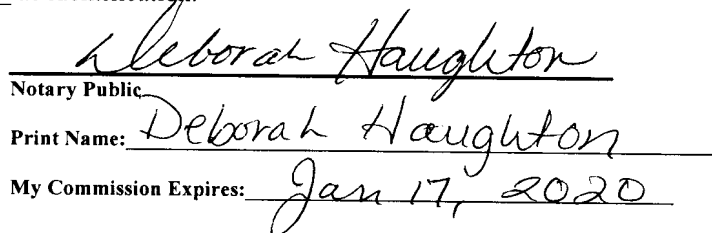 Deborah Haughton
Notary Public
Print Name: Deborah Haughton
My Commission Expires: Jan 17, 2020